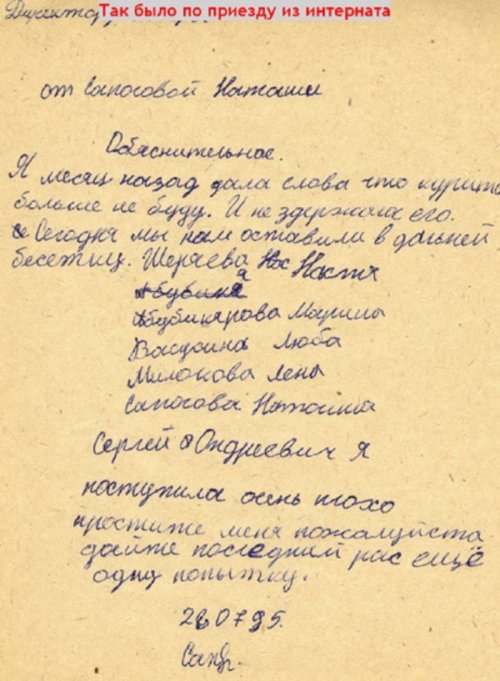 Так было по приезду из интерната
Директору
от Сапоговой Наташи
Обяснительное.
Я месяц назад дала слова что курить
больше не буду. И не здержала его.
Сегодня мы нам оставили в дальней
беседкиц. Ширяева Нас Настя
Абубикярова Марина
Васдоина Люба
Милокова Лена
Сапогова Наташа
Сергей Ондреевич я
поступила осень плохо
простите меня пожалуйста
дайте последний рас ещё
одну попытку.
280795.
Сапг.